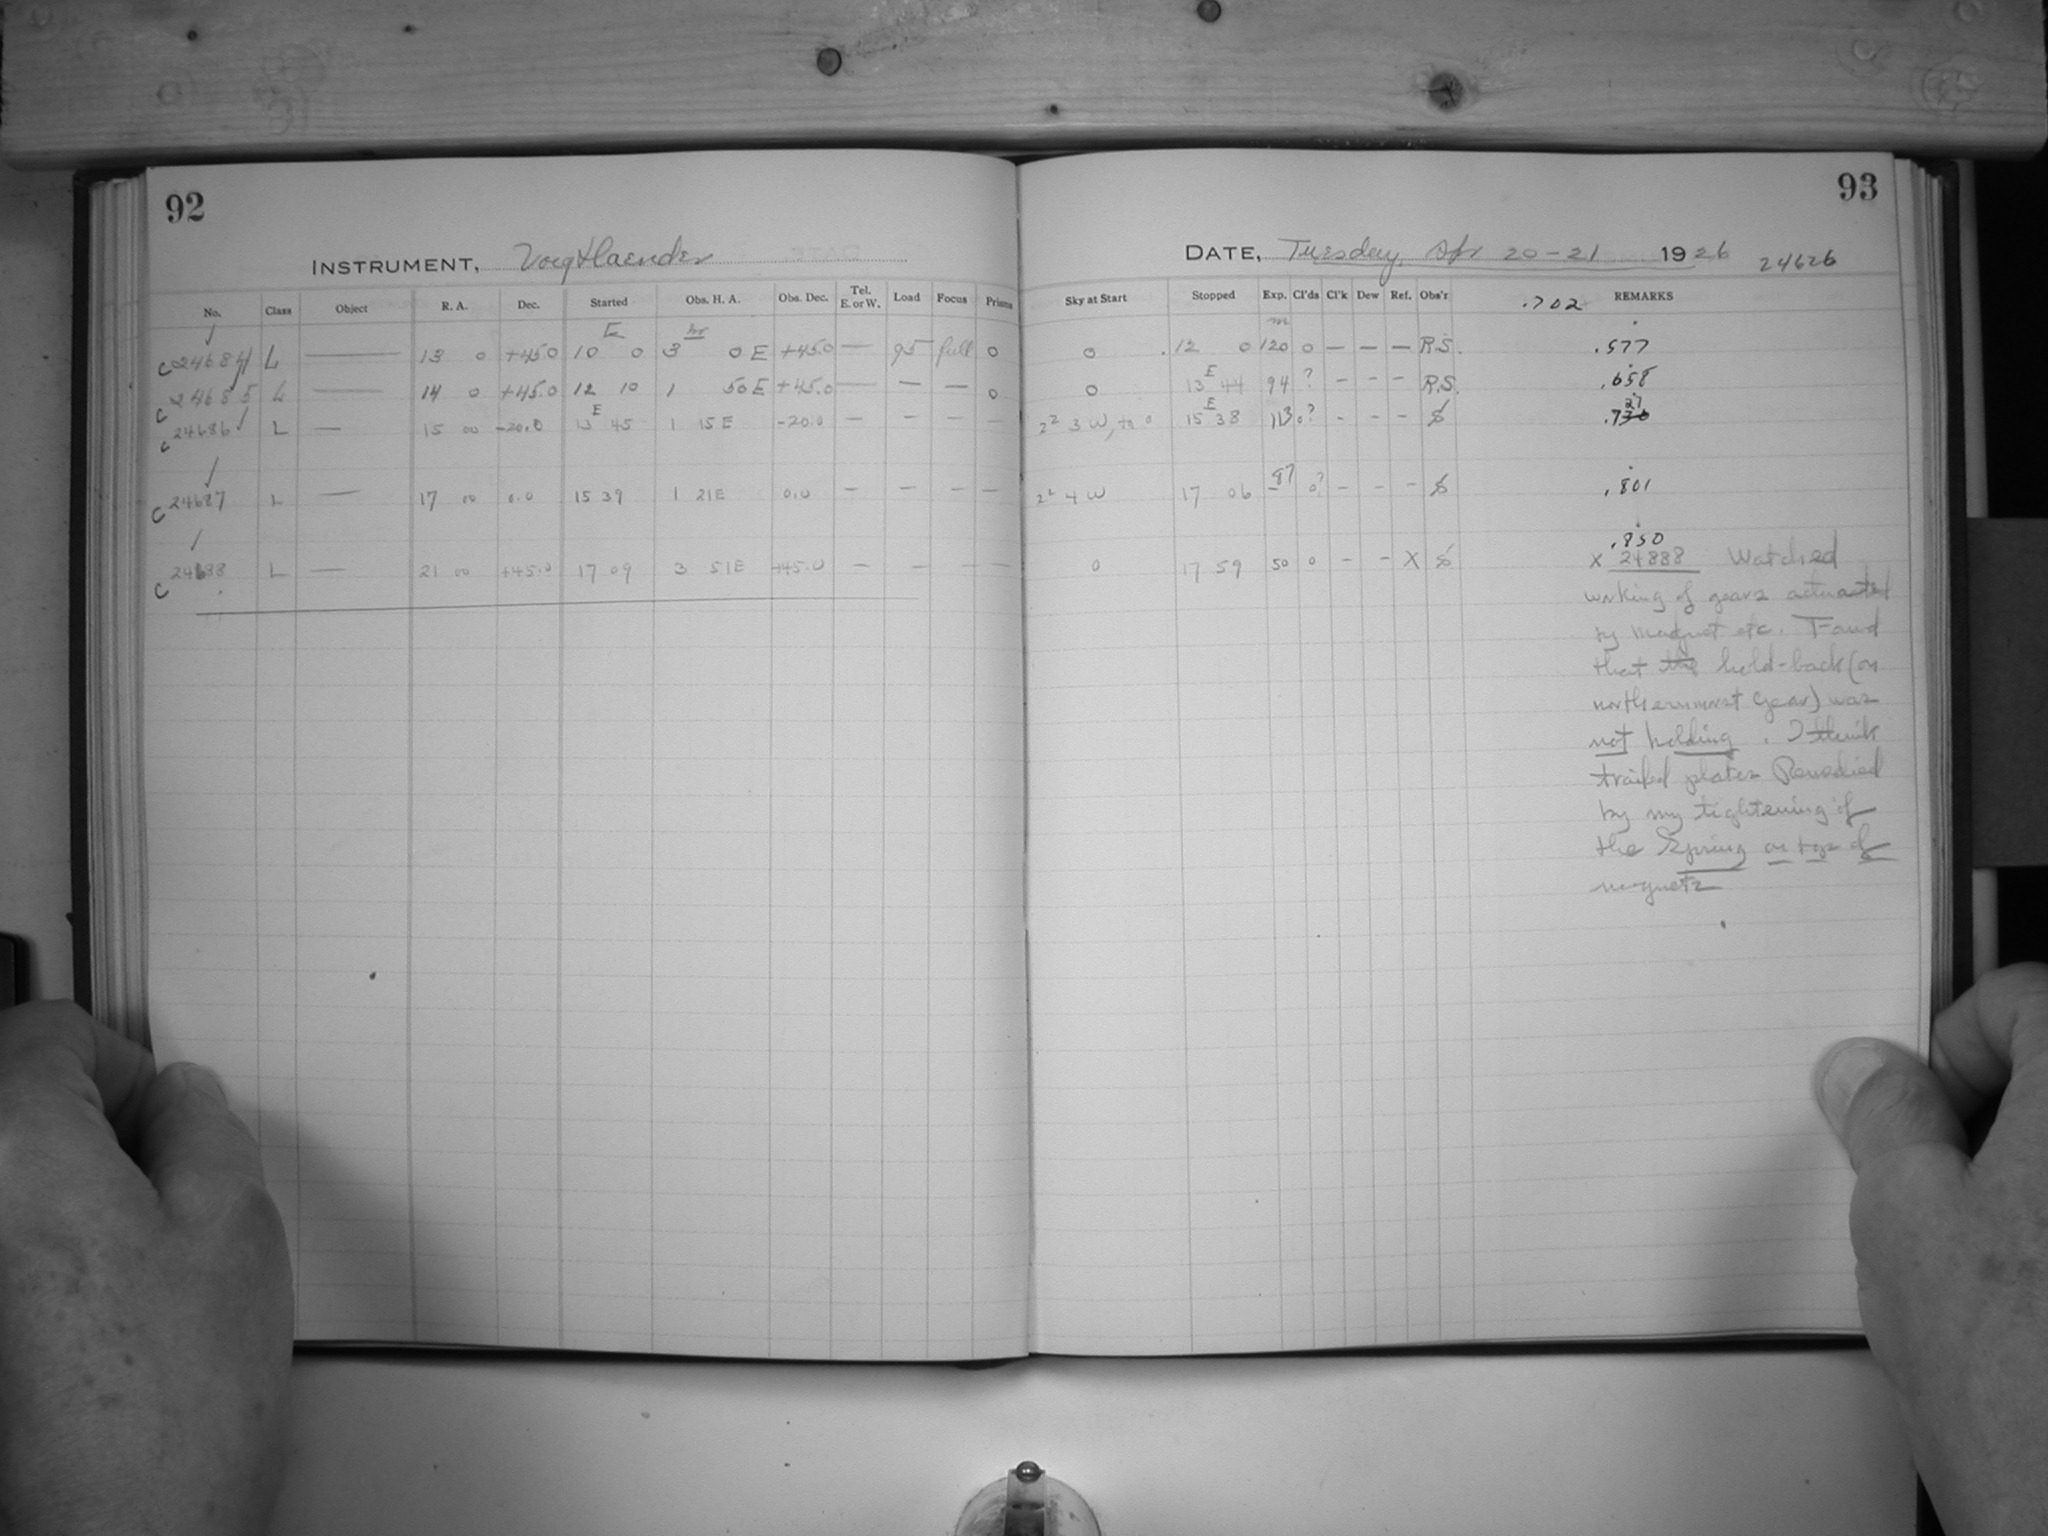 92
INSTRUMENT, Voigtlaender
No. Class Object R. A. Dec. Started Obs. H. A. Obs. Dec. Tel. E. or W. Load Focus Prisms
E hr
C 24684 L — 13 0 +45.0 10 0 3 0 E +45.0 — 95 full 0
C 24685 L — 14 0 +45.0 12 10 1 50 E +45.0 — — — 0
C 24686 L — 15 00 -20.0 13 E 45 1 15 E -20.0 — — — —
C 24687 L — 17 00 0.0 15 39 1 21 E 0.0 — — — —
C 24688 L — 21 00 +45.0 17 09 3 51 E +45.0 — — — —
93
DATE, Tuesday, Apr 20-21 1926 24626
Sky at Start Stopped Exp. Cl'ds Cl'k Dew Ref. Obs'r .702 REMARKS
m
0 12 0 120 0 — — — R.S. .577
0 13 E 44 94 ? - - - R.S. .658
2² 3 W, to 0 15 E 38 113 0? - - - .730 27
2² 4 W 17 06 87 0? - - - .801
.850
0 17 59 50 0 - - X X 24888 Watched
working of gears actuated
by magnet etc. Found
that the hold-back (on
northernmost gear) was
not holding. I think
trailed plates Remedied
by my tightening of
the spring on top of
magnets